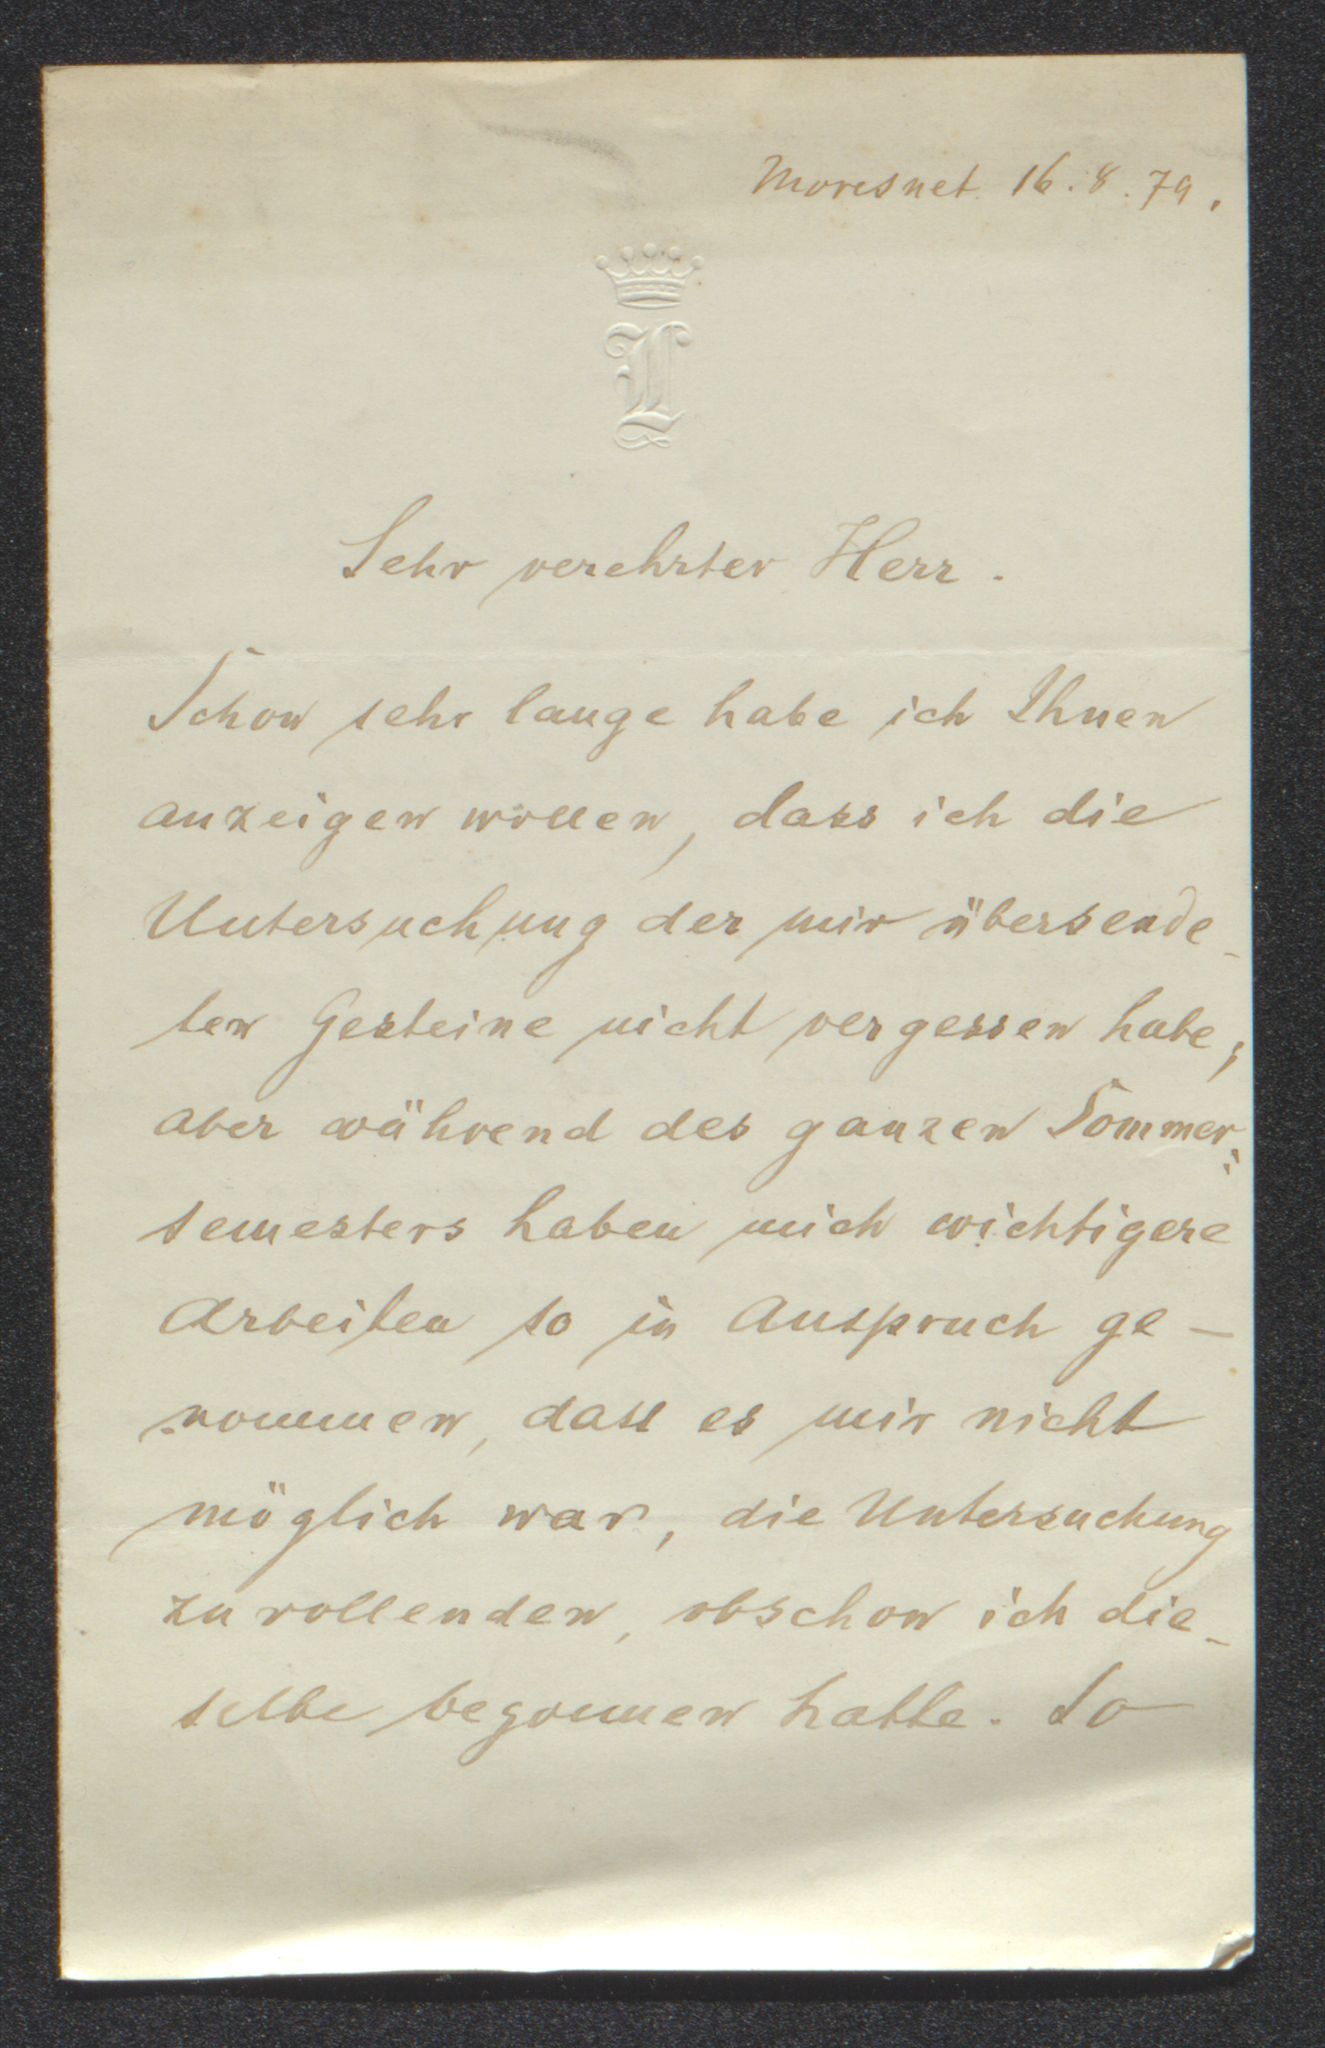 Moresnet 16.8.79.
L
Sehr verehrter Herr.
Schon sehr lange habe ich Ihnen
anzeigen wollen, dass ich die
Untersuchung der mir übersende-
ten Gesteine nicht vergessen habe,
aber während des ganzen Sommer-
semesters haben mich wichtigere
Arbeiten so in Anspruch ge-
nommen, dass es mir nicht
möglich war, die Untersuchung
zu vollenden, obschon ich die-
selbe begonnen hatte. So